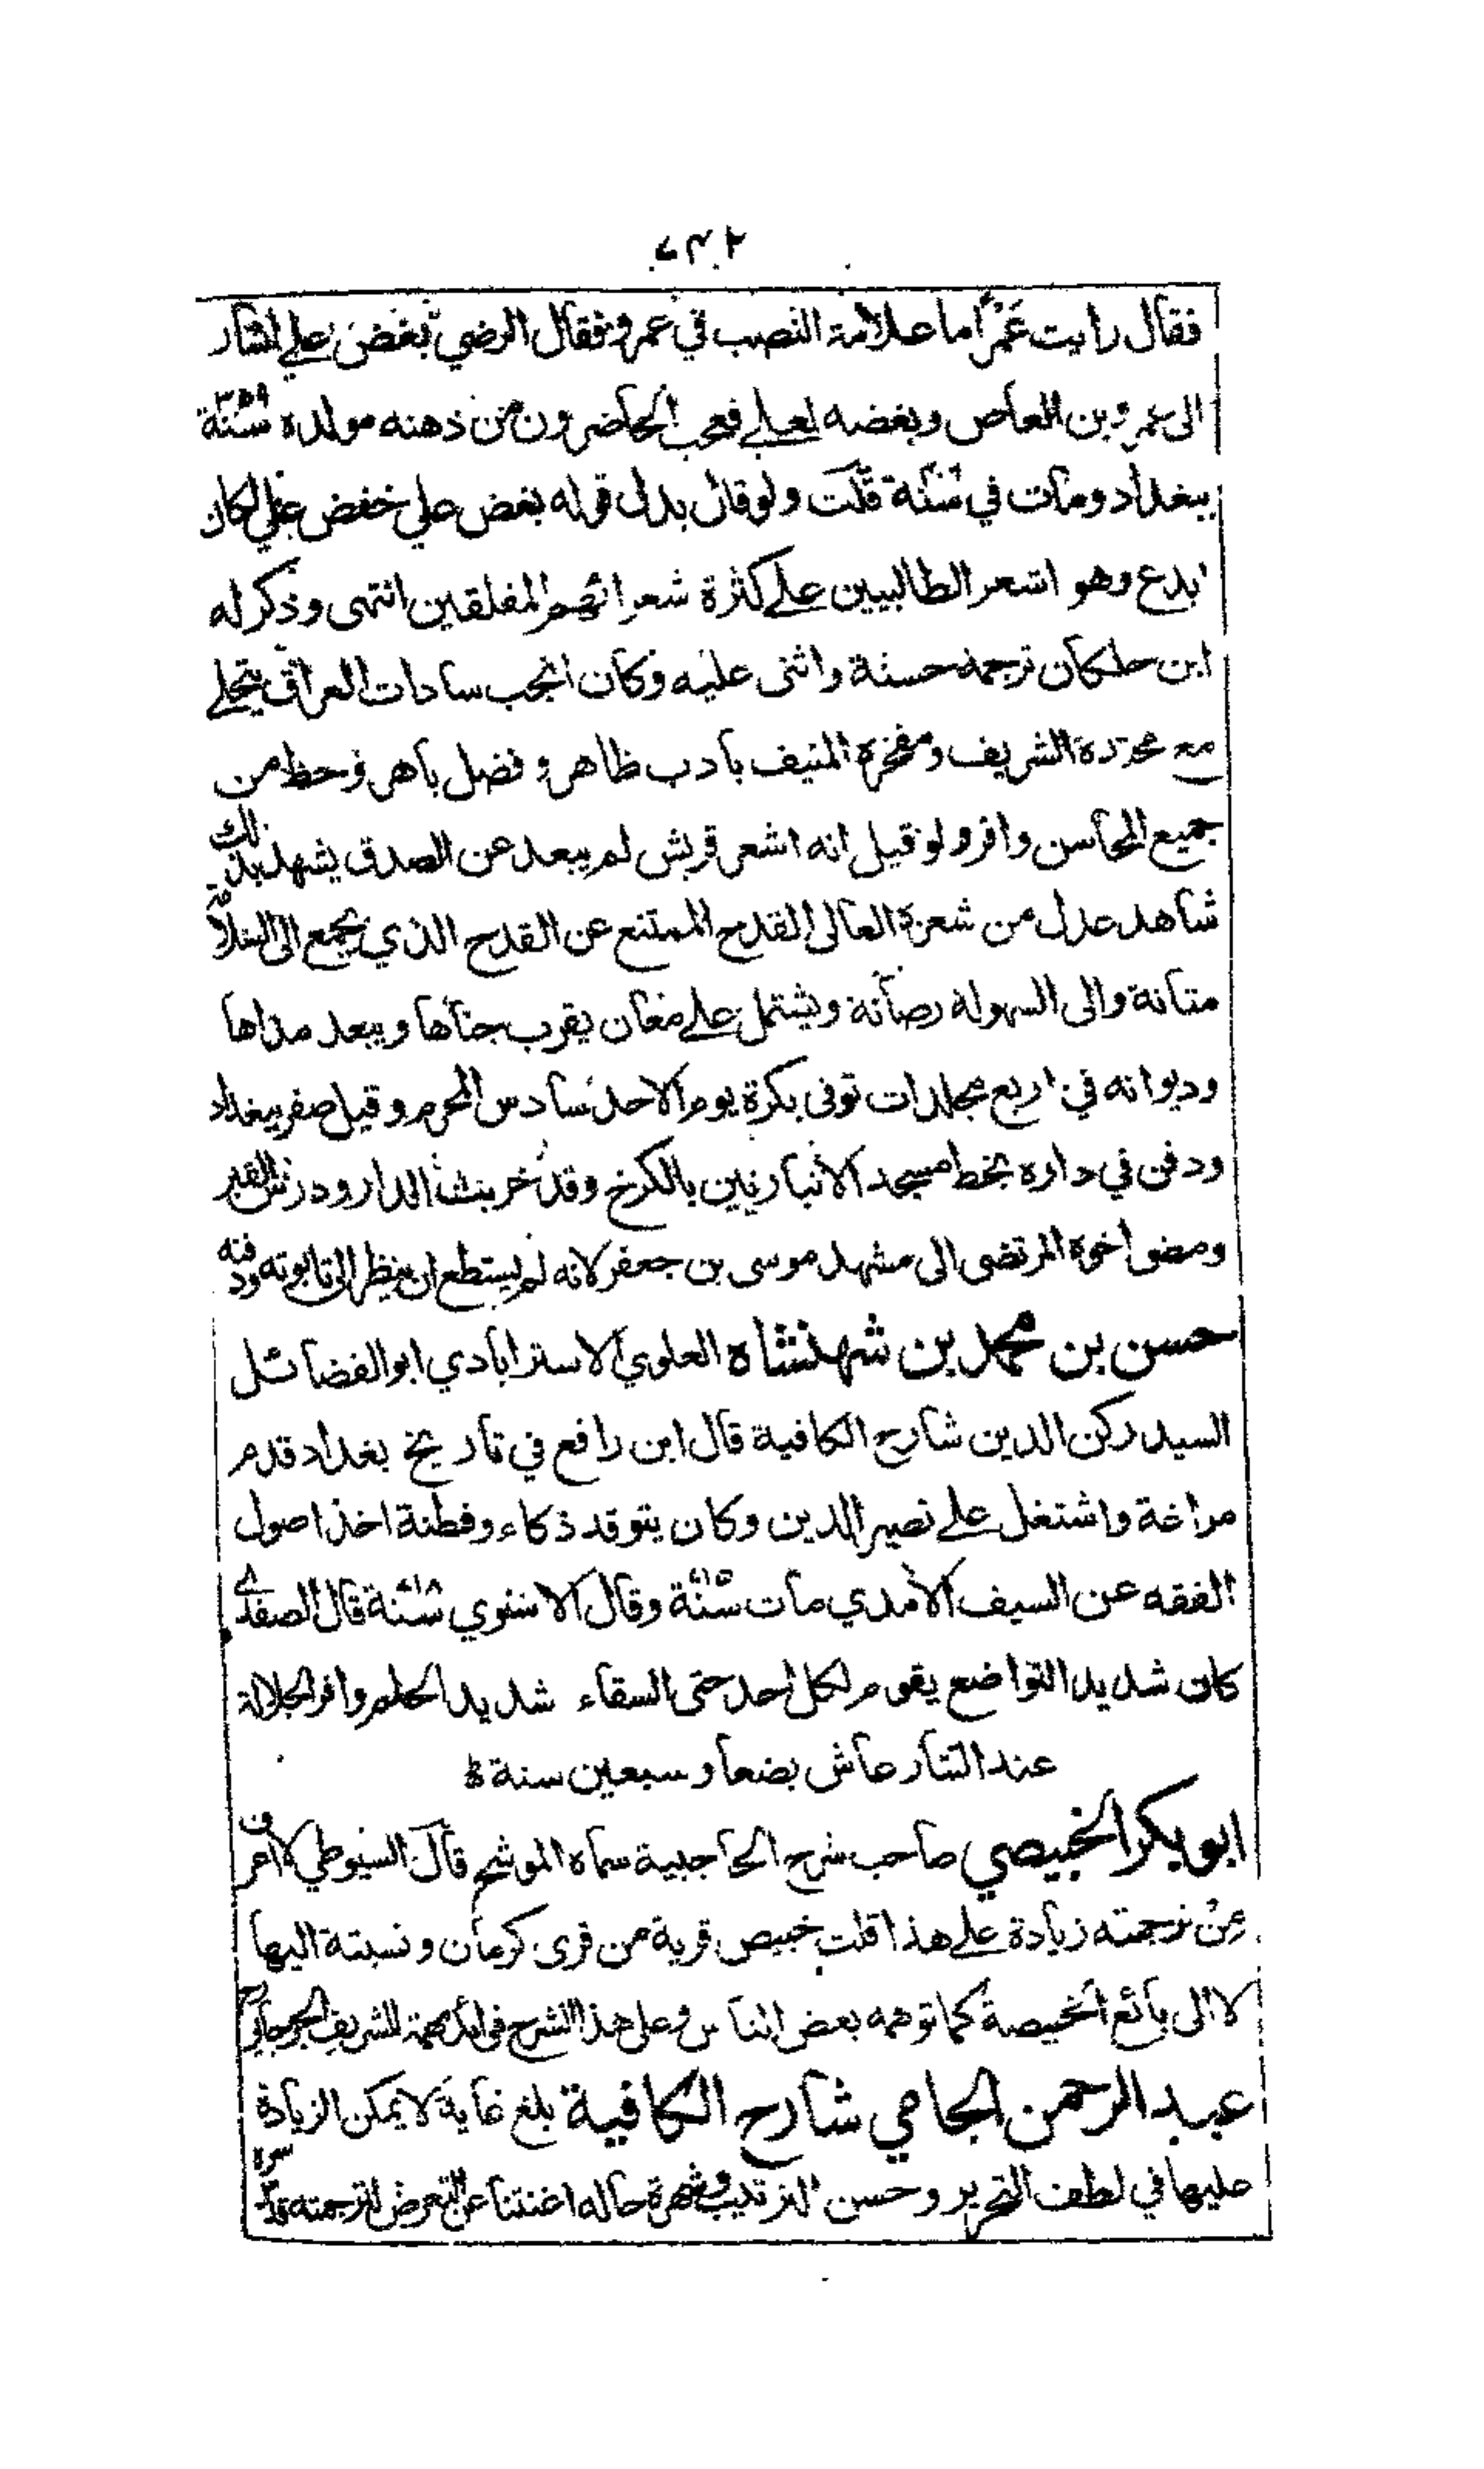 فقال رايت عَمْرًا ما علامة النصب في عمرو فقال الرضي بغض علي اشار
الى عمرو بن العاص وبغضه لعلي فعجب الحاضرون من ذهنه مولده سنة ٣٥٩
ببغداد ومات في سنة قلت ولو قال بدل قوله بغض علي خفض علي لكان
ابدع وهو اشعر الطالبيين على كثرة شعرائهم المفلقين انتهى وذكر له
ابن خلكان ترجمة حسنة واثنى عليه وكان انجب سادات العراق يتحلى
مع محتده الشريف ومفخره المنيف بأدب ظاهر وفضل باهر وحظ من
جميع المحاسن وافر ولو قيل انه اشعر قريش لم يبعد عن الصدق يشهد بذلك
شاهد عدل من شعره العالى القدح الممتنع عن القدح الذي يجمع الى السلاسة
متانة والى السهولة رصانة ويشتمل على معان يقرب جناها ويبعد مداها
وديوانه في اربع مجلدات توفى بكرة يوم الاحد سادس المحرم وقيل صفر ببغداد
ودفن في داره بخط مسجد الانباريين بالكرخ وقد خربت الدار ودرس القبر
ومضى اخوه المرتضى الى مشهد موسى بن جعفر لانه لم يستطع ان ينظر الى تابوته ودفنه
حسن بن محمد بن شهنشاه العلوي الاسترابادي ابو الفضائل
السيد ركن الدين شارح الكافية قال ابن رافع في تاريخ بغداد قدم
مراغة واشتغل على نصير الدين وكان يتوقد ذكاء وفطنة اخذ اصول
الفقه عن السيف الآمدي مات سنة وقال الاسنوي سنة قال الصفدي
كان شديد التواضع يقوم لكل احد حتى السقاء شديد الحلم وافر الجلالة
عند التتار عاش بضعا و سبعين سنة
ابو بكر الخبيصي صاحب شرح الحاجبية سماه الموشح قال السيوطي لا اعرف
من ترجمته زيادة على هذا قلت خبيص قرية من قرى كرمان ونسبته اليها
لا الى بائع الخبيصة كما توهمه بعض الناس وعلى هذا الشرح للشريف الجرجاني
عبد الرحمن الجامي شارح الكافية بلغ غاية لا يمكن الزيادة
عليها في لطف التحرير وحسن الترتيب وشهرة حاله اغنتنا عن التعرض لترجمته قدس سره